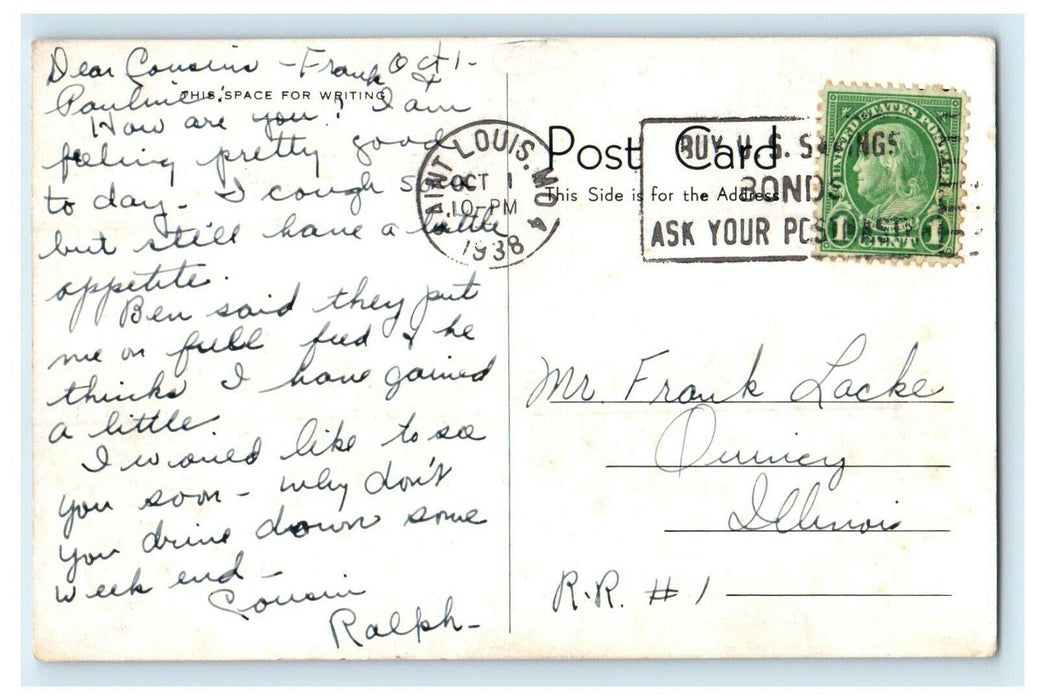 Dear Cousins - Frank & Oct 1 -
THIS SPACE FOR WRITING
Pauline: I am
How are you?
feeling pretty good
to day. I cough some
but still have a little
appetite.
Ben said they put
me on full feed & he
thinks I have gained
a little
I would like to see
you soon - why don't
you drive down some
week end -
Cousin
Ralph -
SAINT LOUIS, MO 4
OCT 1
10-PM
1938
Post Card
This Side is for the Address
BUY U.S. SAVINGS
BONDS
ASK YOUR POSTMASTER
UNITED STATES POSTAGE
1 CENT 1
Mr. Frank Locke
Quincy
Illinois
R.R. # 1